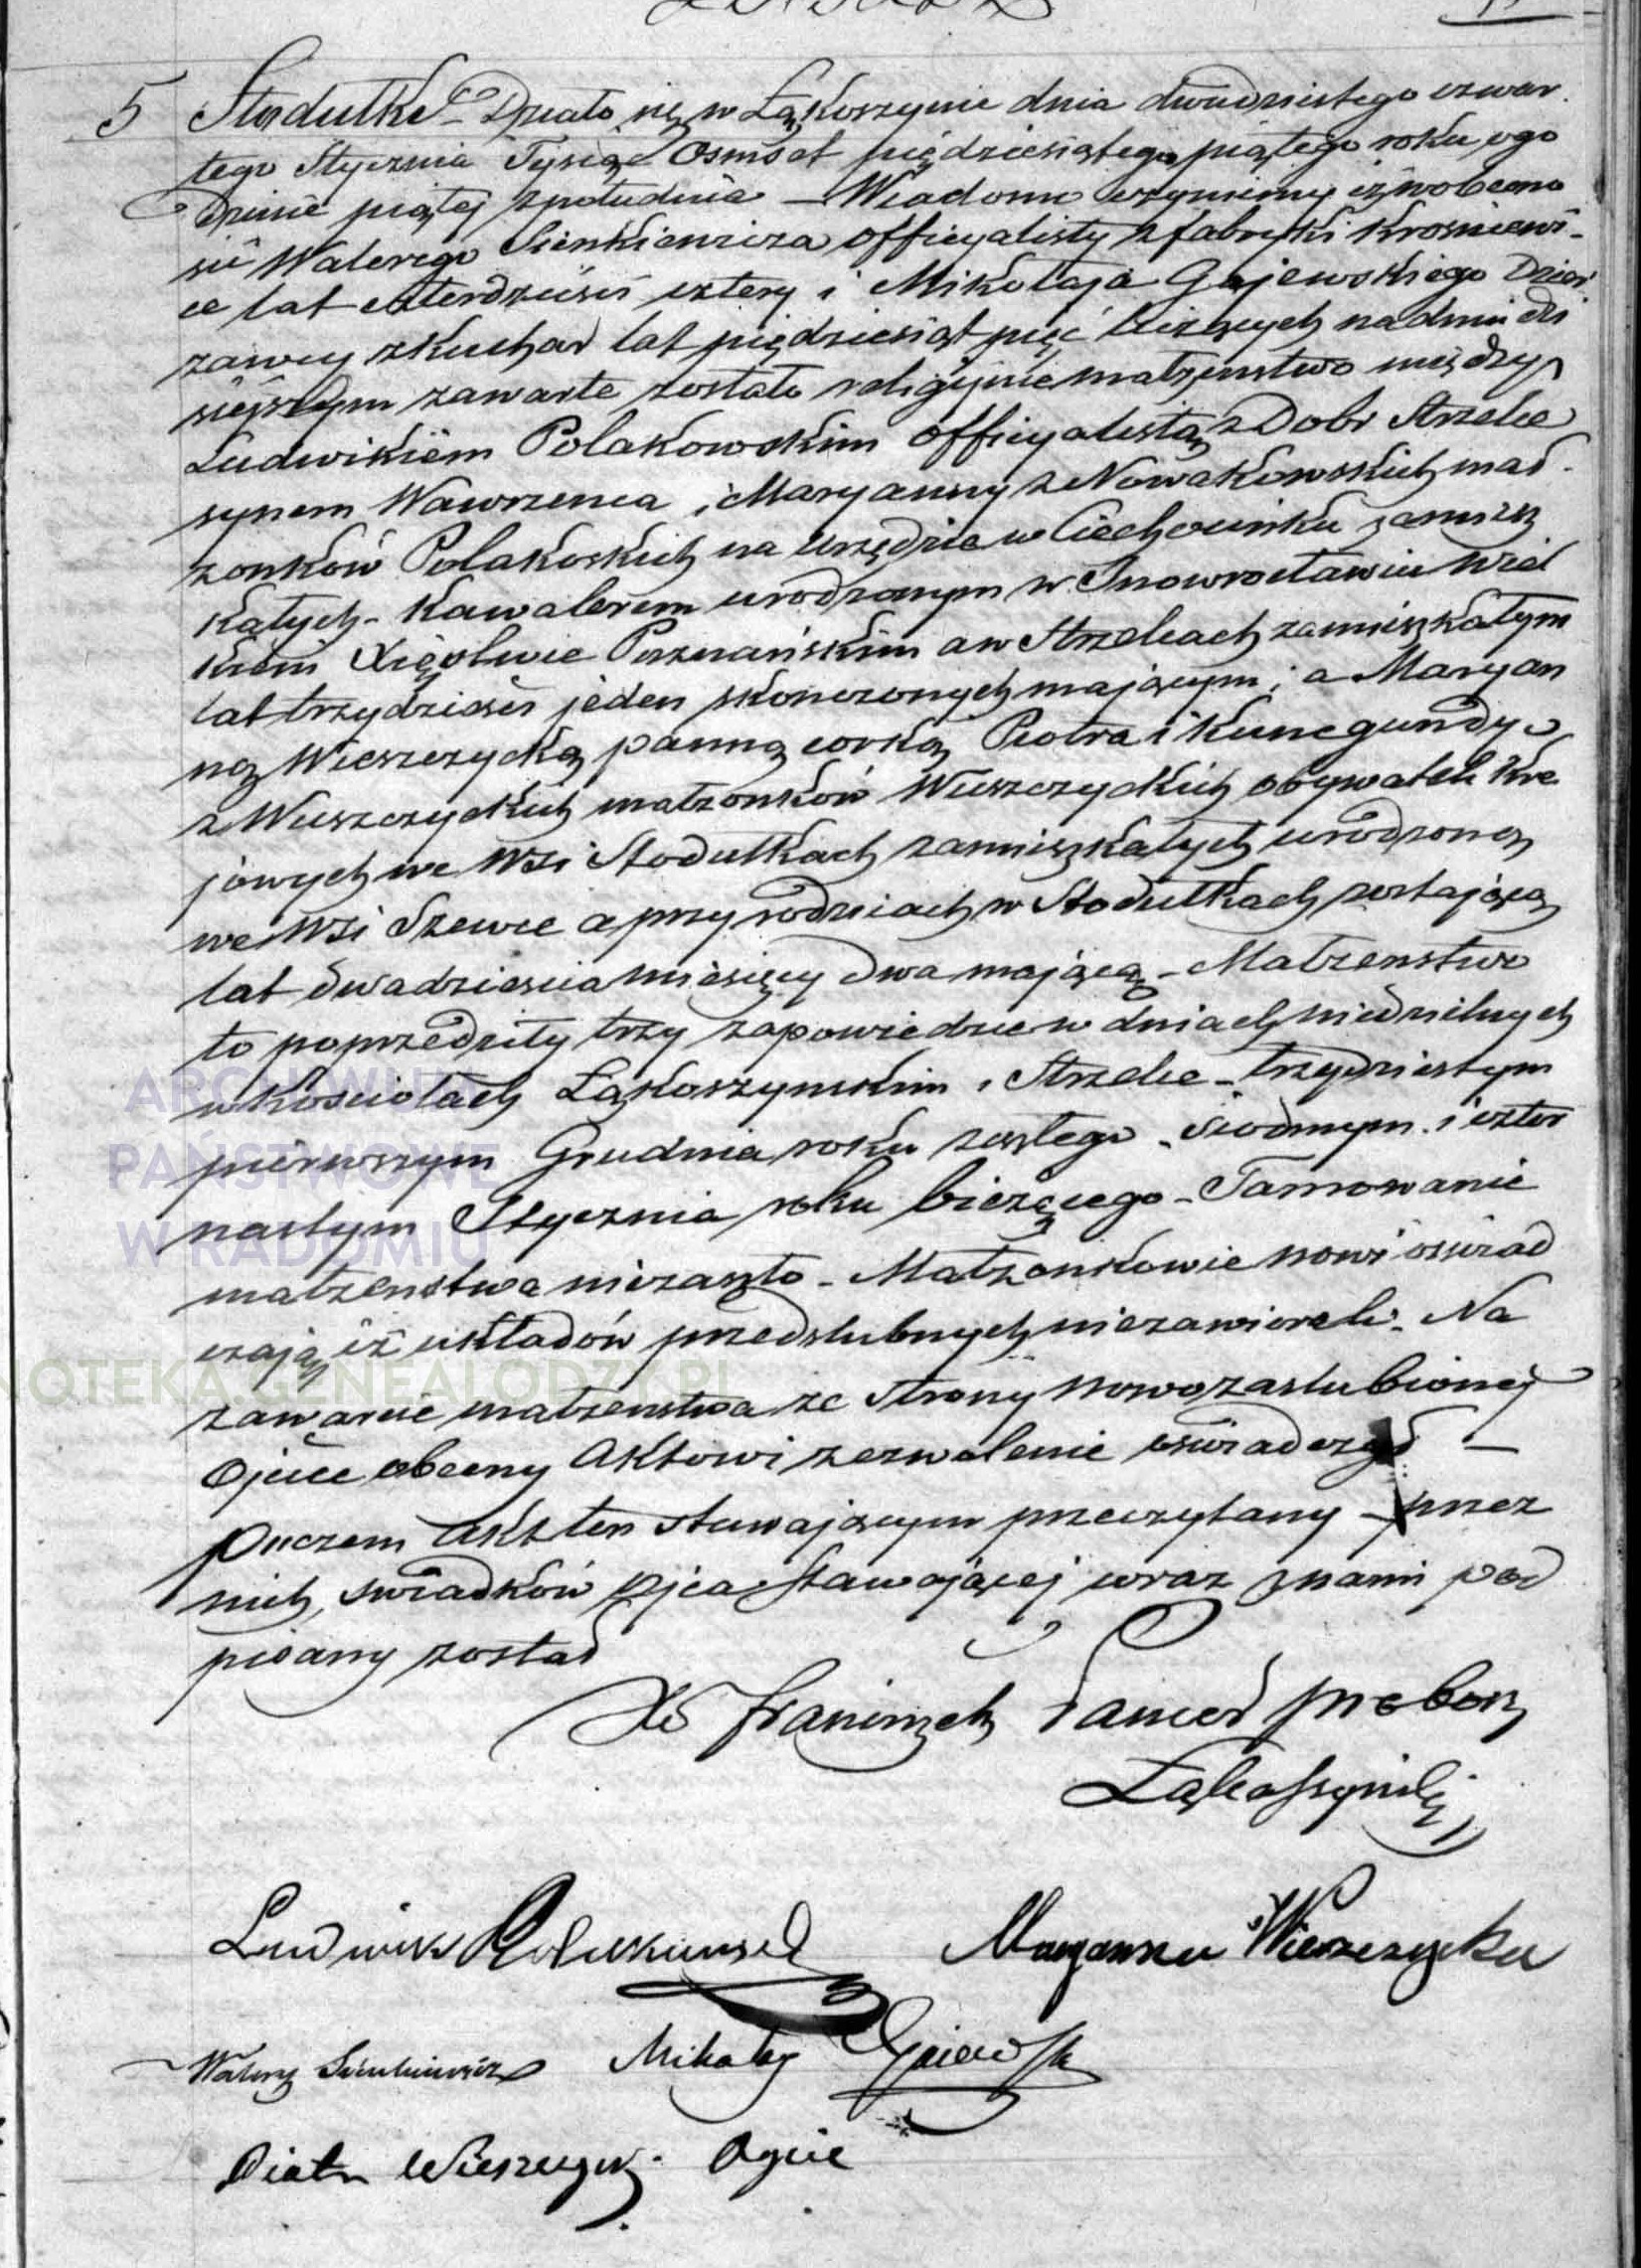 5 Stodułki Działo się w Łąkoszynie dnia dwudziestego czwar
tego Stycznia Tysiąc Osmset pięćdziesiątego piątego roku, o go
dzinie piątej z południa – Wiadomo czyniemy iż w obecno
ści Walerego Sienkiewicza officyalisty z fabryki Krosniewi-
ce lat czterdzieści cztery i Mikołaja Gajewskiego Dzier
zawcy z Kuchar lat pięćdziesiąt pięć liczących na dniu dzi
siejszym zawarte zostało religijne małżeństwo między
Ludwikiem Polakowskim officyalistą z Dobr Strzelce
synem Wawrzenca i Maryanny z Nowakowskich mał-
zonków Polakoskich na urzędzie w Ciechocinku zamiesz
kałych – Kawalerem urodzonym w Inowrocławiu Wiel
kiem Xięstwie Poznańskim a w Strzelcach zamieszkałym
lat trzydzieści jeden skonczonych mającym; a Maryan
ną Wieszczycką panną corką Piotra i Kunegundy
z Wieszczyckich małzonków Wieszczyckich obywateli Kra
jowych we Wsi Stodułkach zamieszkałych urodzoną
we Wsi Szewce a przy rodzicach w Stodułkach zostającą
lat dwadzieścia miesięcy dwa mającą – Małzenstwo
to poprzedziły trzy zapowiedzie w dniach niedzielnych
w Kosciołach Łąkoszynskim i Strzelce – trzydziestym
pierwszym Grudnia roku zeszłego, siodmym i czter
nastym Stycznia roku bieżącego – Tamowanie
małzenstwa nie zaszło – Małzonkowie nowi oświad
czają iż układów przedslubnych niezawierali. Na
zawarcie małzenstwa ze strony nowozaslubionej
Ojciec obecny Aktowi zezwolenie oświadczył –
poczem Akt ten stawającym przeczytany – przez
nich, swiadków ojca stawającej wraz z nami pod
pisany został
Xs Franciszek proboszcz
Łąkoszynski
Ludwik Polakowski Maryanna Wieszczycka
Walery Sienkiewicz Mikołaj Gajewski
Piotr Wieszczycki Oyciec
ARCHIWUM
PAŃSTWOWE
W RADOMIU
NOTEKA.GENEALODZY.PL